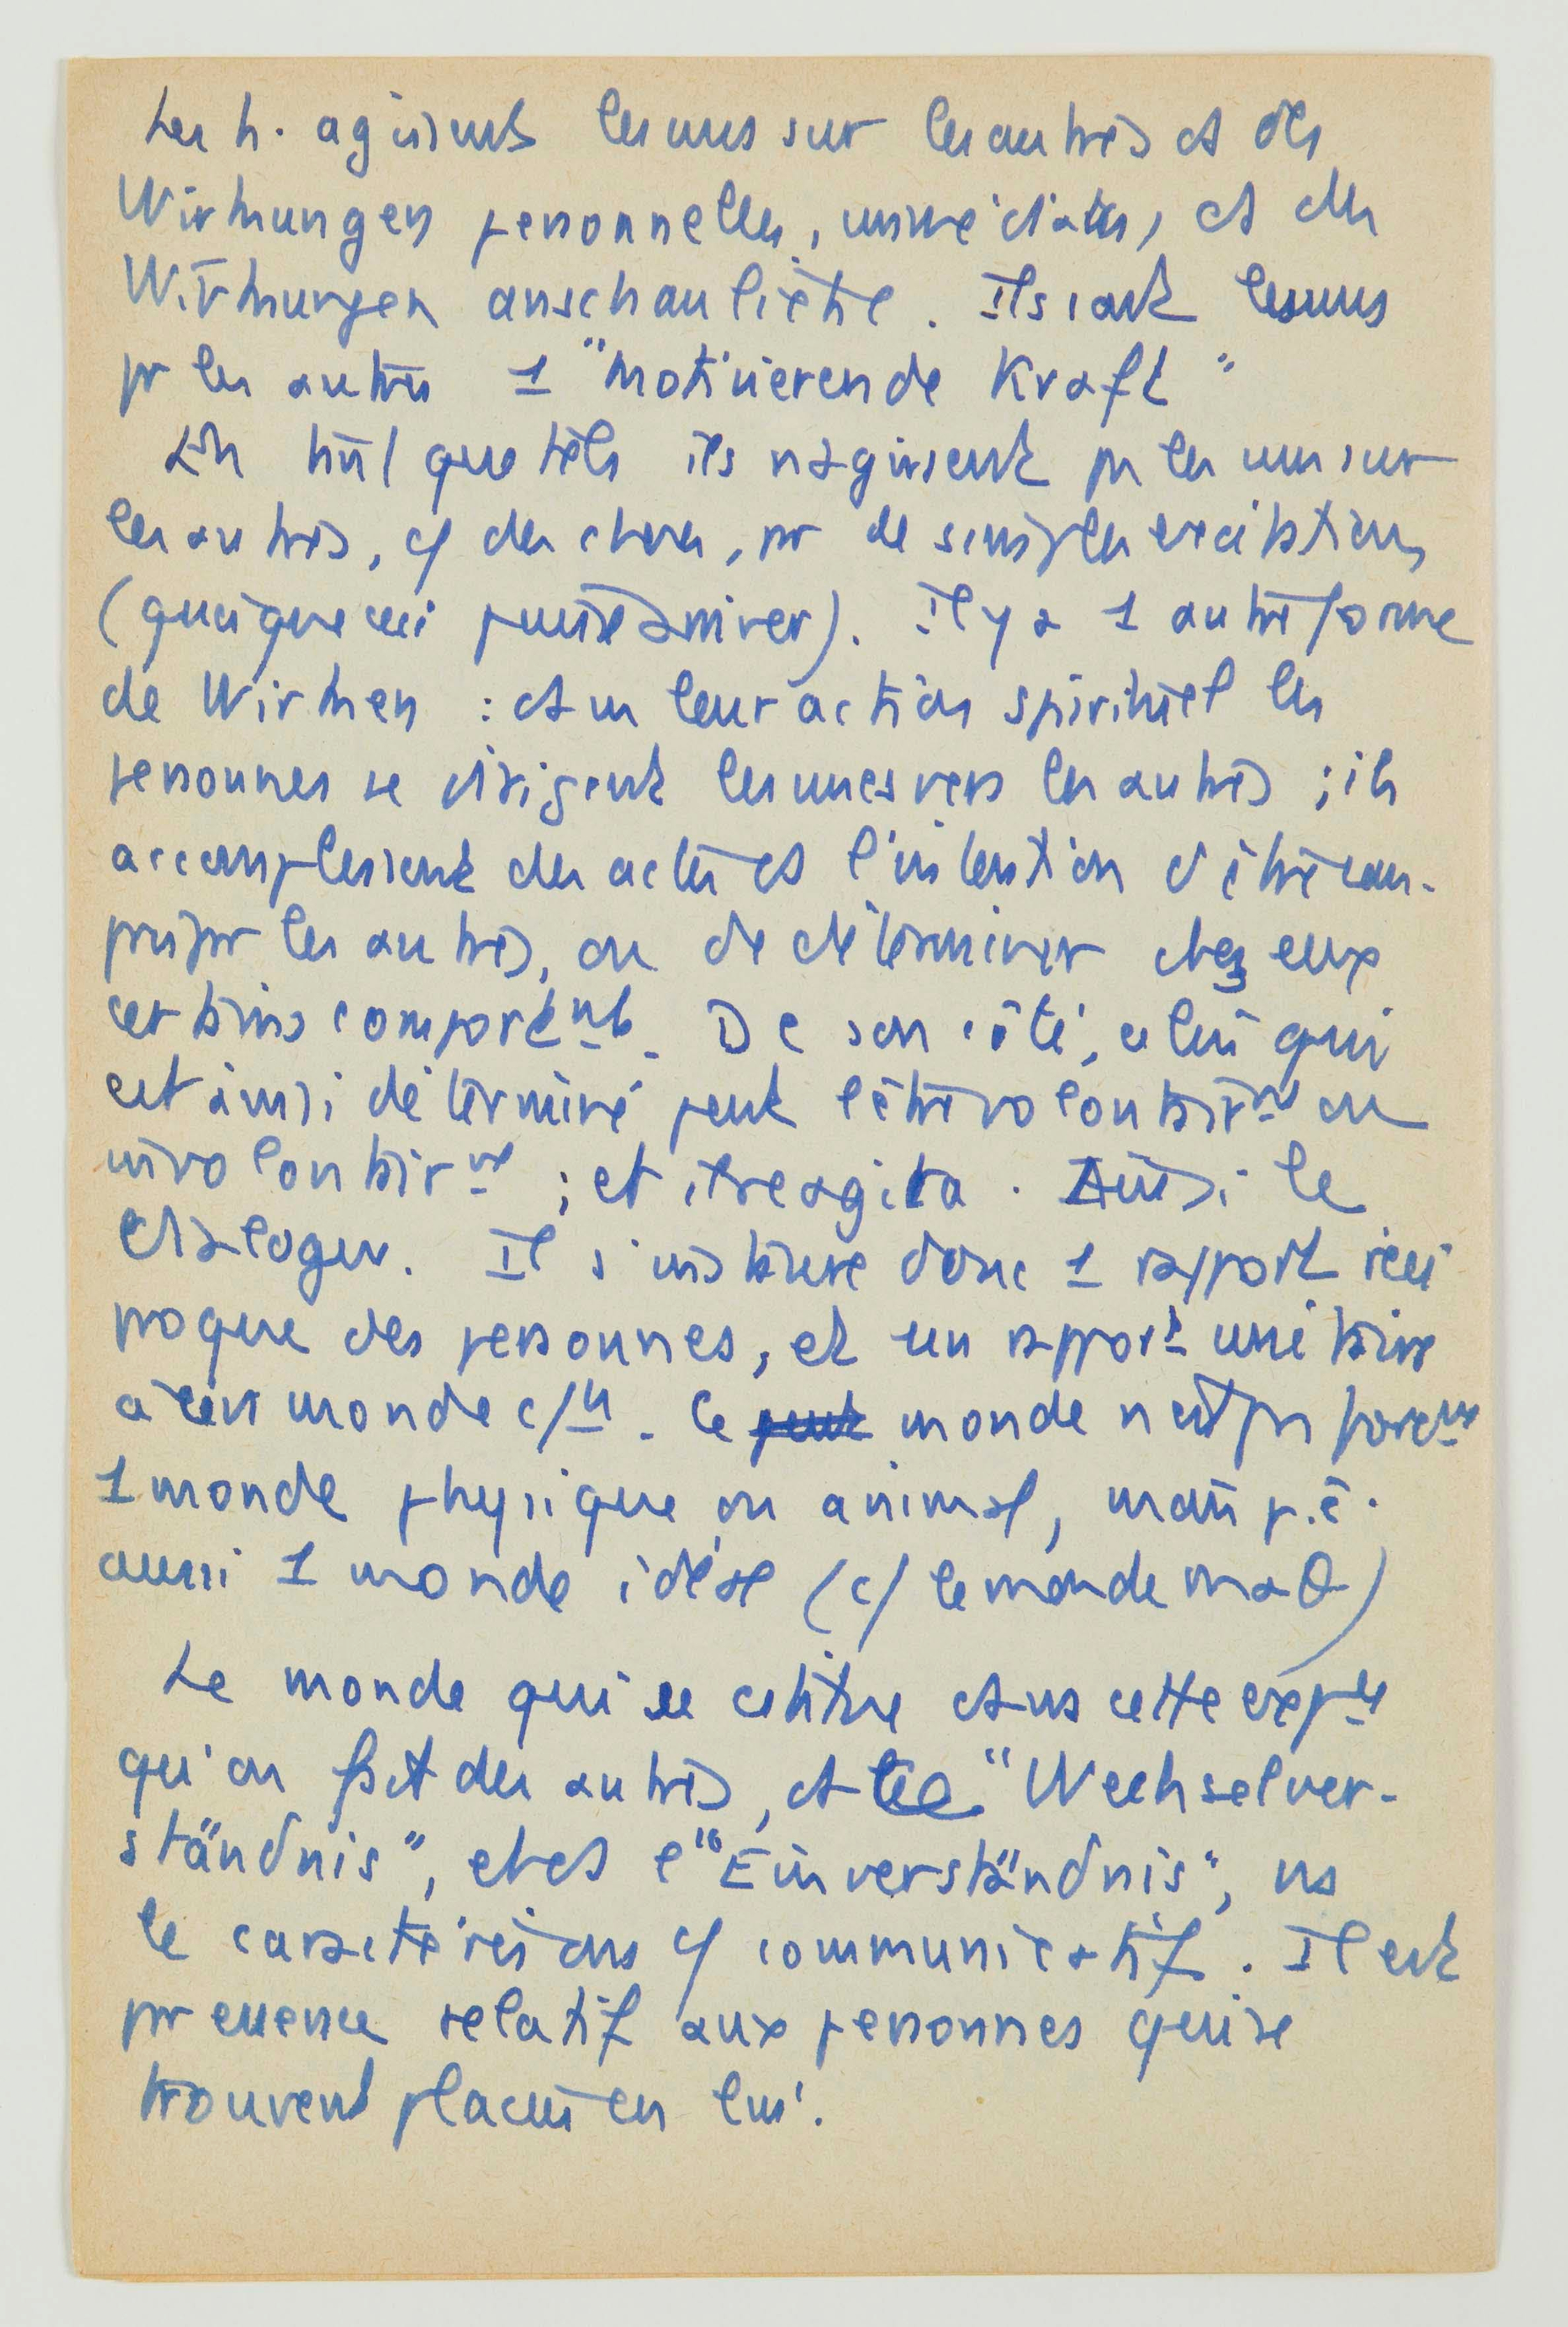 Les h. agissent les uns sur les autres et des
Wirkungen personnelles, immédiates, et des
Wirkungen anschauliche. Ils sont les uns
pr les autres 1 "motivierende Kraft"
En tant que tels ils n'agissent pas les uns sur
les autres, c/ des choses, par de simples excitations
(quoique ceci puisse arriver). Il y a 1 autre forme
de Wirken : ds leur action spirituel les
personnes se dirigent les unes vers les autres ; ils
accomplissent des actes ds l'intention d'être com-
pris par les autres, ou de déterminer chez eux
certains comportnts. De son côté, celui qui
est ainsi déterminé peut l'être volontairnt ou
involontairnt ; et il réagira. Ainsi le
dialogue. Il s'instaure donc 1 rapport réci
proque des personnes, et un rapport unitaire
à leur monde c/n. Ce monde n'est pas forcmt
1 monde physique ou animal, mais p.ê.
aussi 1 monde idéal (c/ le monde maθ)
Le monde qui se cstitue dans cette expce
qu'on fait des autres, ds le "Wechselver-
ständnis", et ds l'"Einverständnis", ns
le caractérisons c/ communicatif. Il est
par essence relatif aux personnes qui se
trouvent placées en lui.